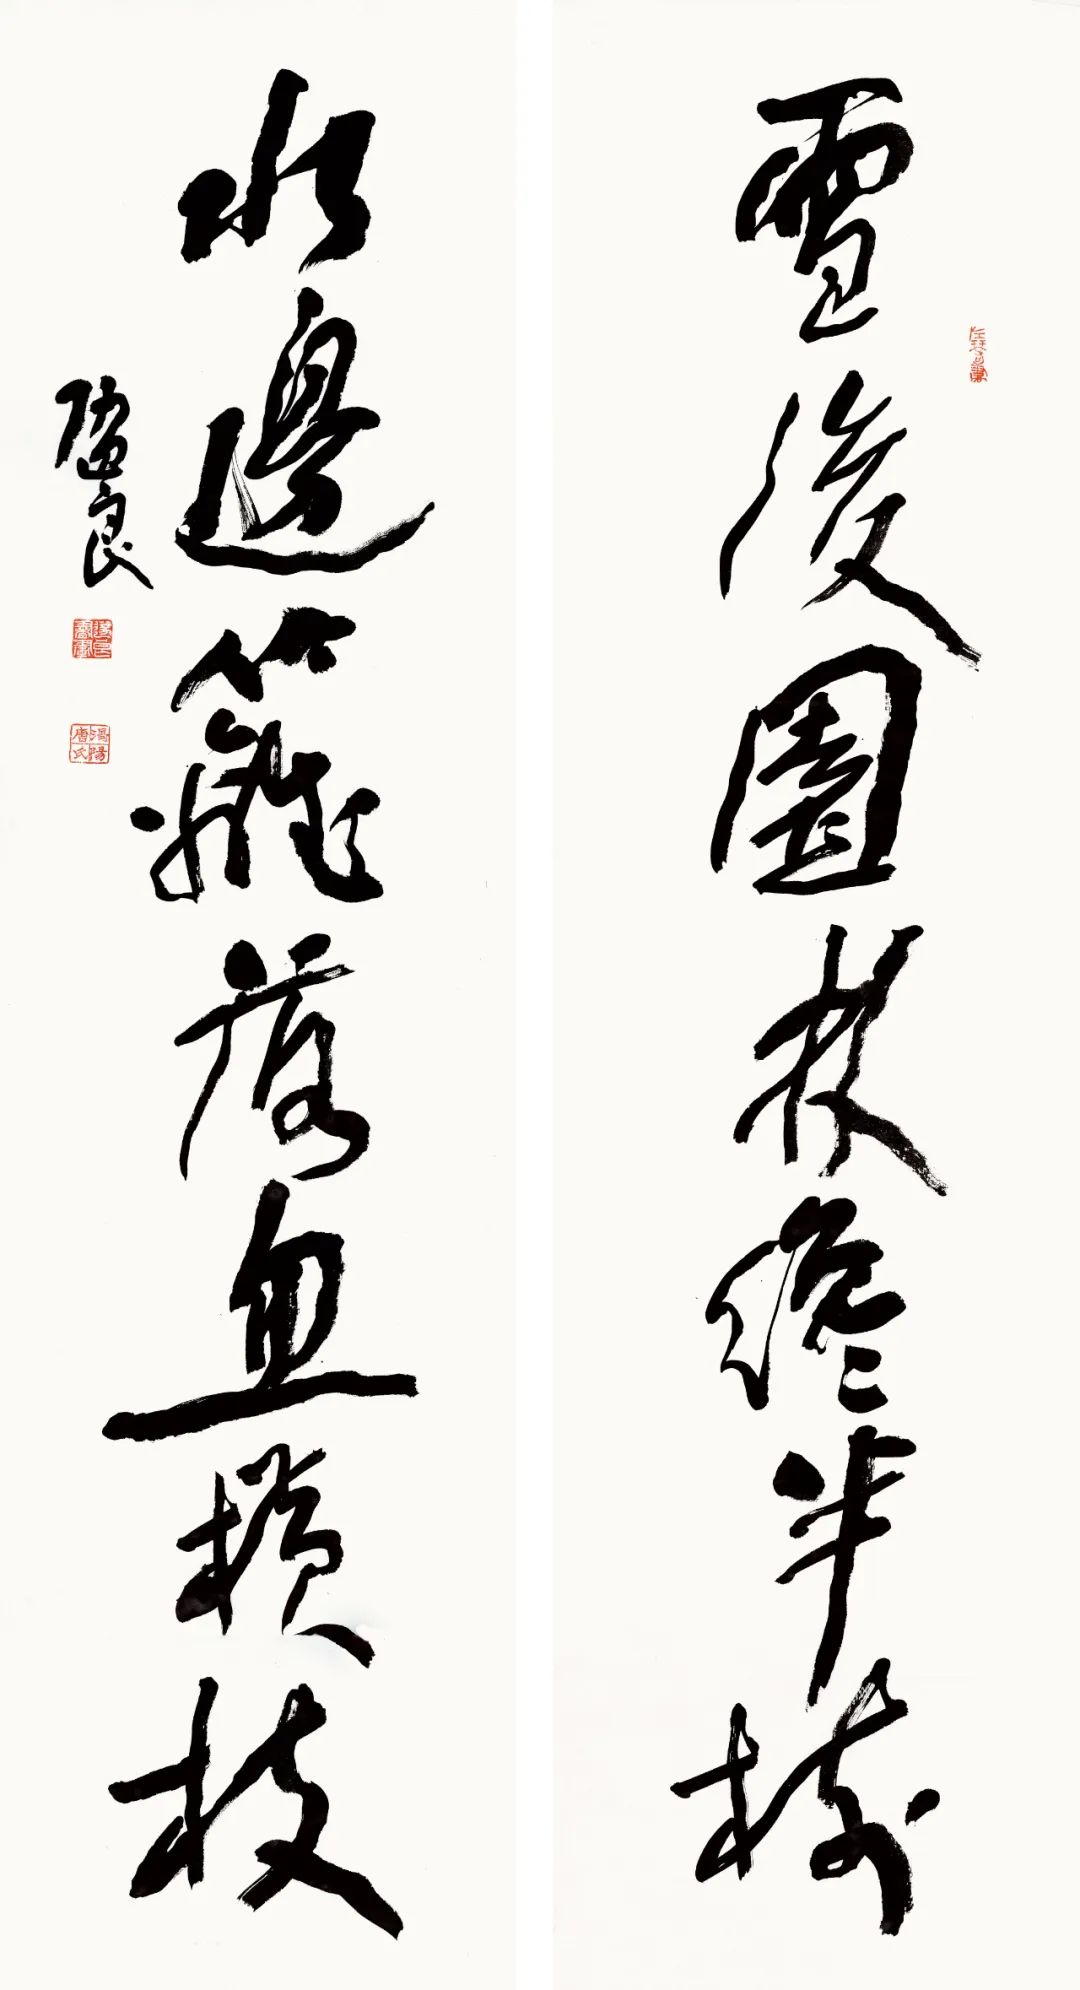 雪後園林纔半樹
水邊籬落忽橫枝
良